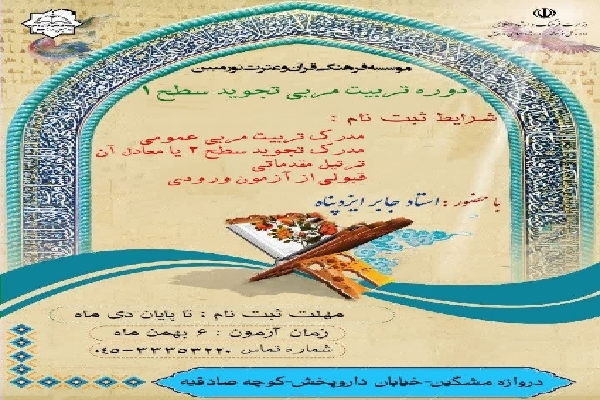 موسسه فرهنگی قرآن و عترت نور مبین
دوره تربیت مربی تجوید سطح ۱
شرایط ثبت نام :
مدرک تربیت مربی عمومی
مدرک تجوید سطح ۲ یا معادل آن
ترتیل مقدماتی
قبولی از آزمون ورودی
با حضور : استاد جابر ایزدپناه
مهلت ثبت نام : تا پایان دی ماه
زمان آزمون : ۶ بهمن ماه
شماره تماس ۳۳۳۵۳۲۲۰-۰۴۵
دروازه مشگین-خیابان داروپخش-کوچه صادقیه